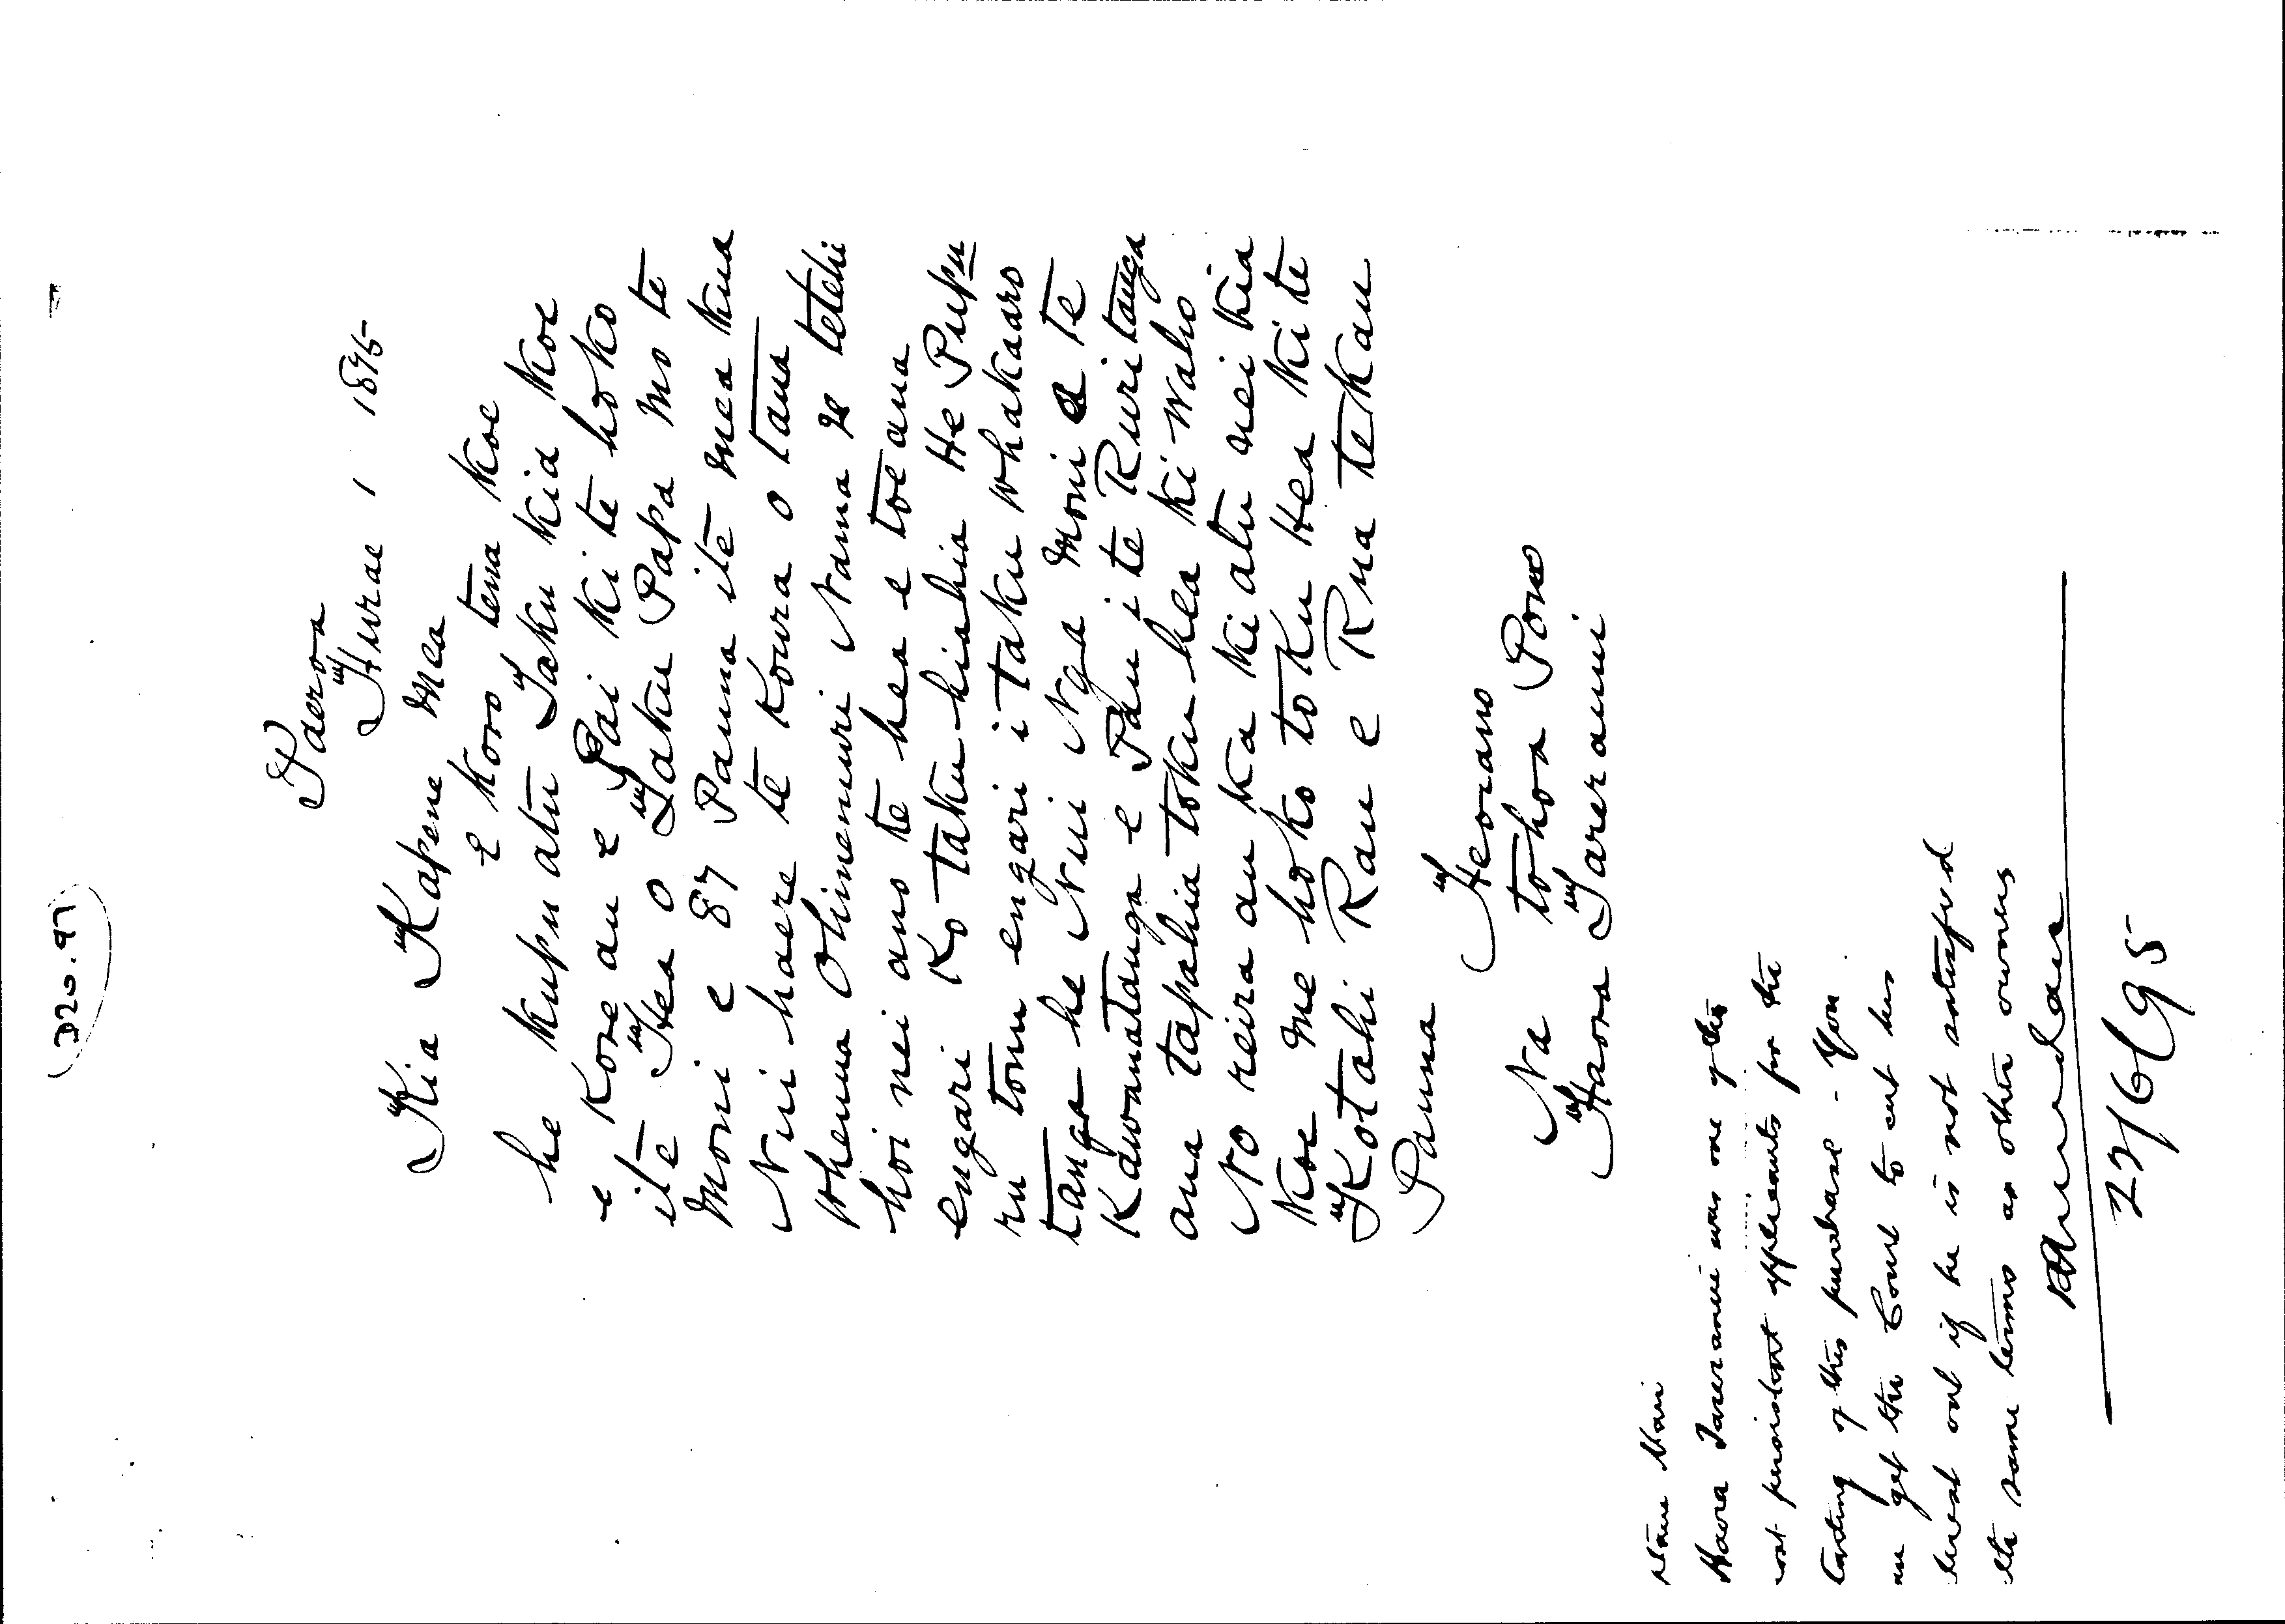 (320.97)
Paeroa
Hurae 1 1895
Kia Kapene Mea
E Koro tena Koe
he kupu atu Taku kia Koe
e Kore au e Pai ki te hoko
ite Hea o Taku Papa mo te
Moni e 87 Pauna ite mea kua
Nui haere te Koura o taua
Whenua Ohinemuri Nama 20 tetehi
hoi nei ano te hea e toe ana
engari Ko taku hiahia He Pupu
ru tonu engari i taku whakaaro
tanga he Nui Nga Moni a te
Kawanatanga e Pau i te Ruritanga
ana tapahia toku hea ki waho
No reira au Ka ki atu nei kia
Koe me hoko toku Hea ki te
Kotahi Rau e Rua tekau
Pauna
Heorano
Na to hoa Pono
Haora Tareranui
Haora Tareranui was one of the
most persistent applicants for the
of this purchase - You
can get the Court to cut his
out if he is not satisfied
the same terms as other owners
22/6/95